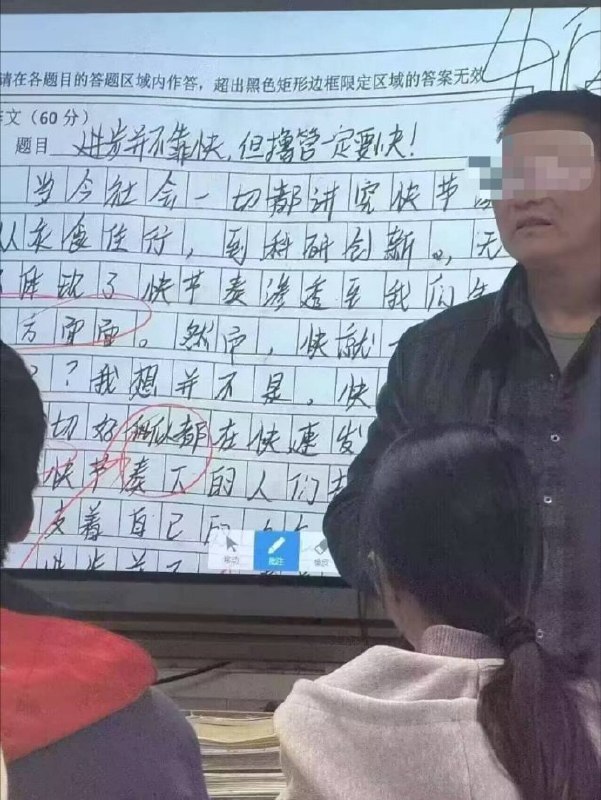 请在各题目的答题区域内作答，超出黑色矩形边框限定区域的答案无效
文（60分）
题目 进步并不靠快，但撸管一定要快！
当今社会一切都讲究快节
从衣食住行，到科研创新。，无
体现了快节奏渗透至我们生
方面面。然而，快就
？我想并不是。快
切好 都在快速发
快节奏下的人们
支着自己的
移动 批注